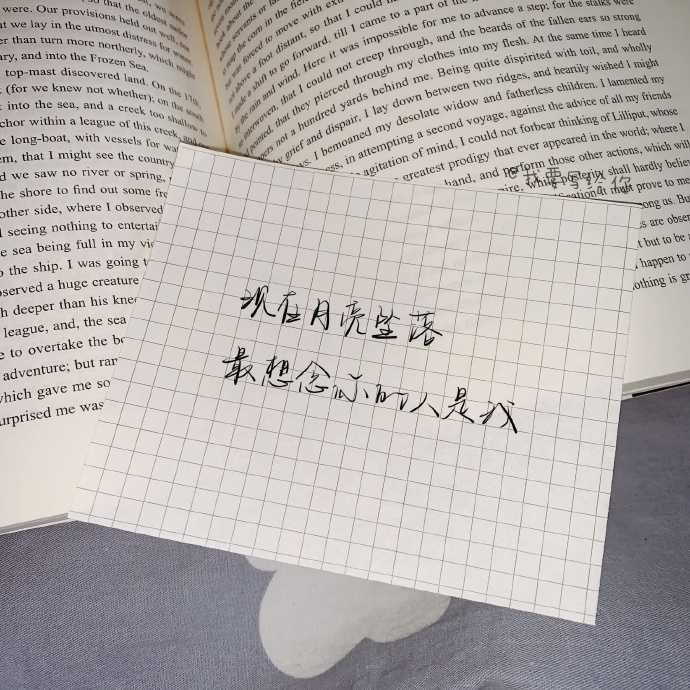 were. Our provisions held out well, our
at we lay in the utmost distress for water
er than turn more northerly, which might
ary, and into the Frozen Sea.
top-mast discovered land. On the 17th
(for we knew not whether); on the south
t into the sea, and a creek too shallow to
chor within a league of this creek, and
e long-boat, with vessels for wa
em, that I might see the country
d we saw no river or spring,
the shore to find out some fre
other side, where I observed
I seeing nothing to entertai
e sea being full in my vie
o the ship. I was going t
bserved a huge creature
h deeper than his knee
league, and, the sea
e to overtake the bo
adventure; but ran
which gave me so
urprised me was
the corn in the fie
forced to move with ext
a foot distant, so that I could
a shift to go forward, till I came to a part of the
the rain and wind. Here it was impossible for me to advance a step; for the stalks were
interwoven, that I could not creep through, and the beards of the fallen ears so strong
pointed, that they pierced through my clothes into my flesh. At the same time I heard
not a hundred yards behind me. Being quite dispirited with toil, and wholly
by grief and dispair, I lay down between two ridges, and heartily wished I might
I bemoaned my desolate widow and fatherless children. I lamented my
in attempting a second voyage, against the advice of all my friends
agitation of mind, I could not forbear thinking of Lilliput, whose
greatest prodigy that ever appeared in the world; where I
hand, and perform those other actions, which will
while posterity shall hardly believe
it must prove to me
ong us. But
s are obser
t but to be a
happen to
othing is gr
我要写给你
现在月亮坠落
最想念你的人是我